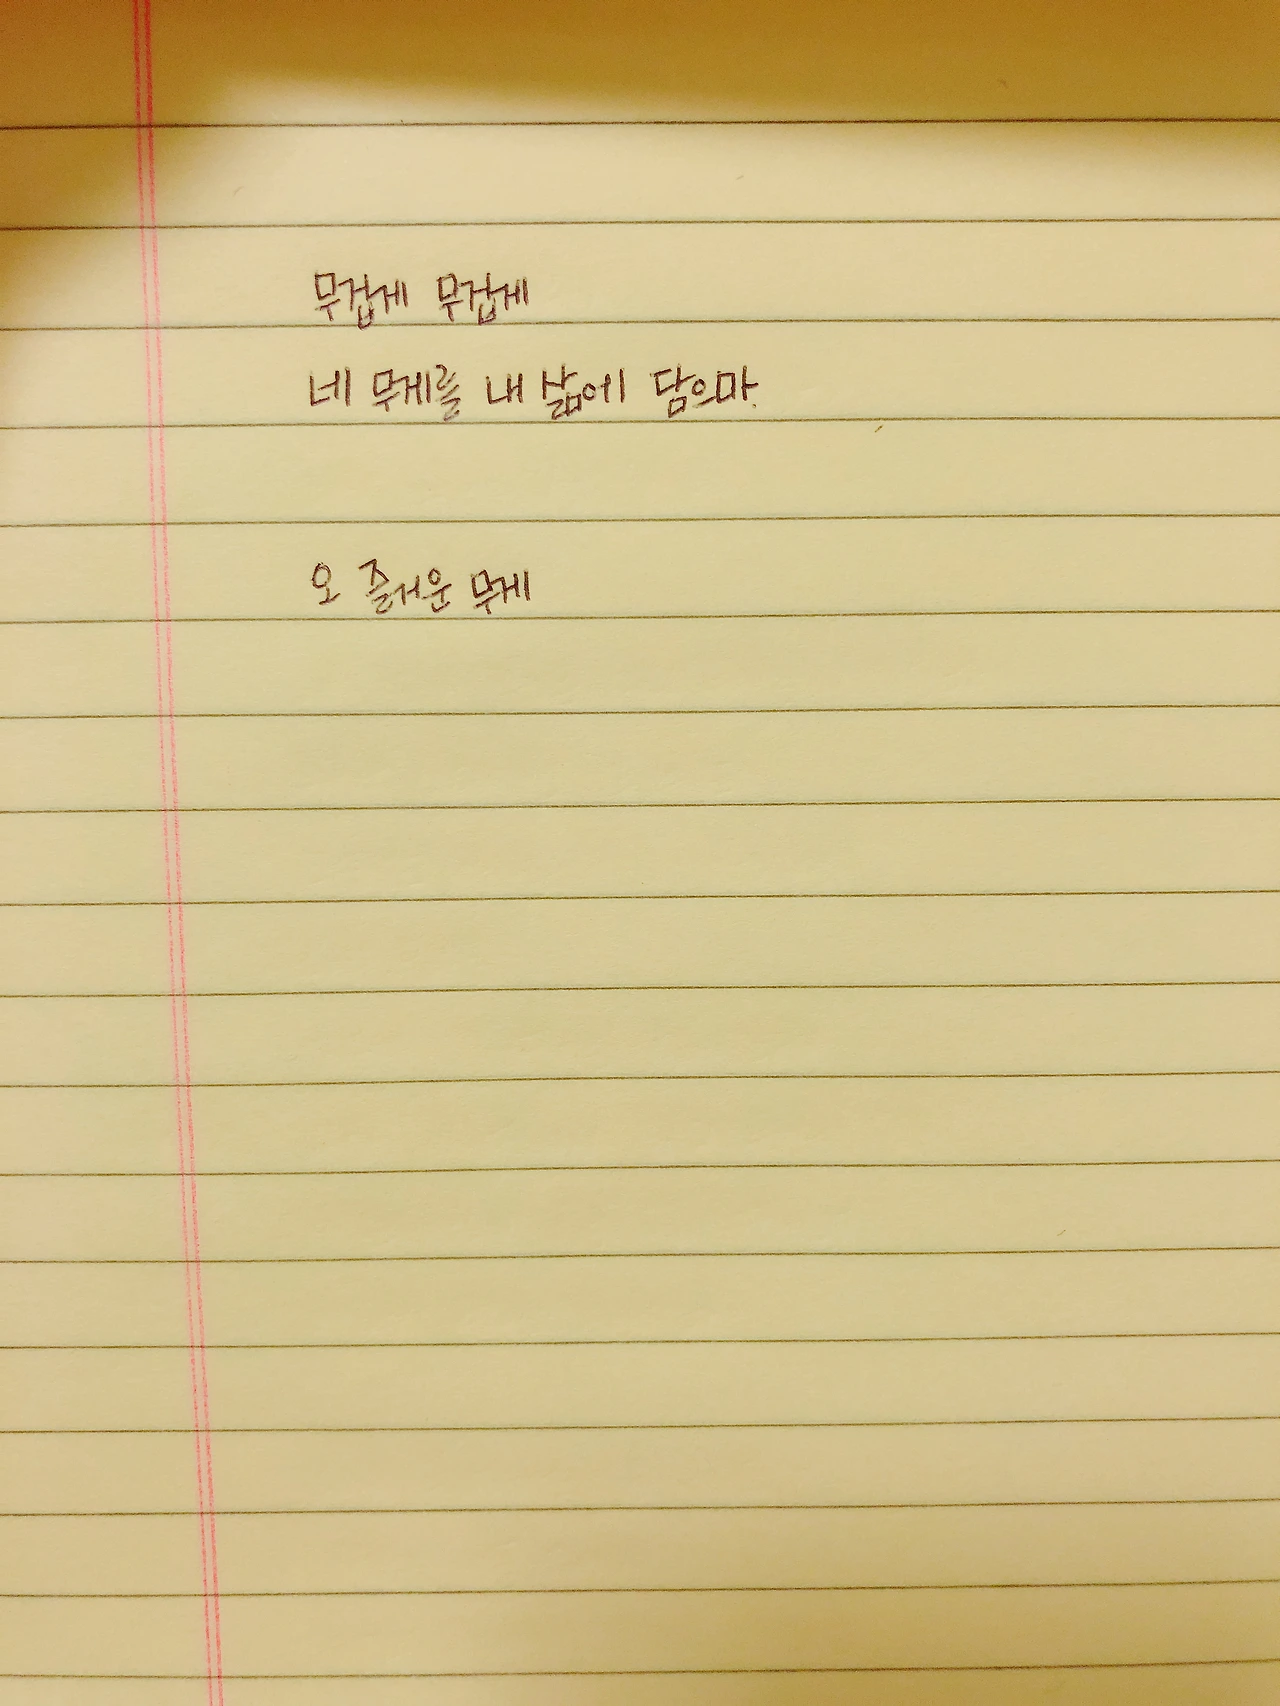 무겁게 무겁게
네 무게를 내 삶에 담으마.
오 즐거운 무게